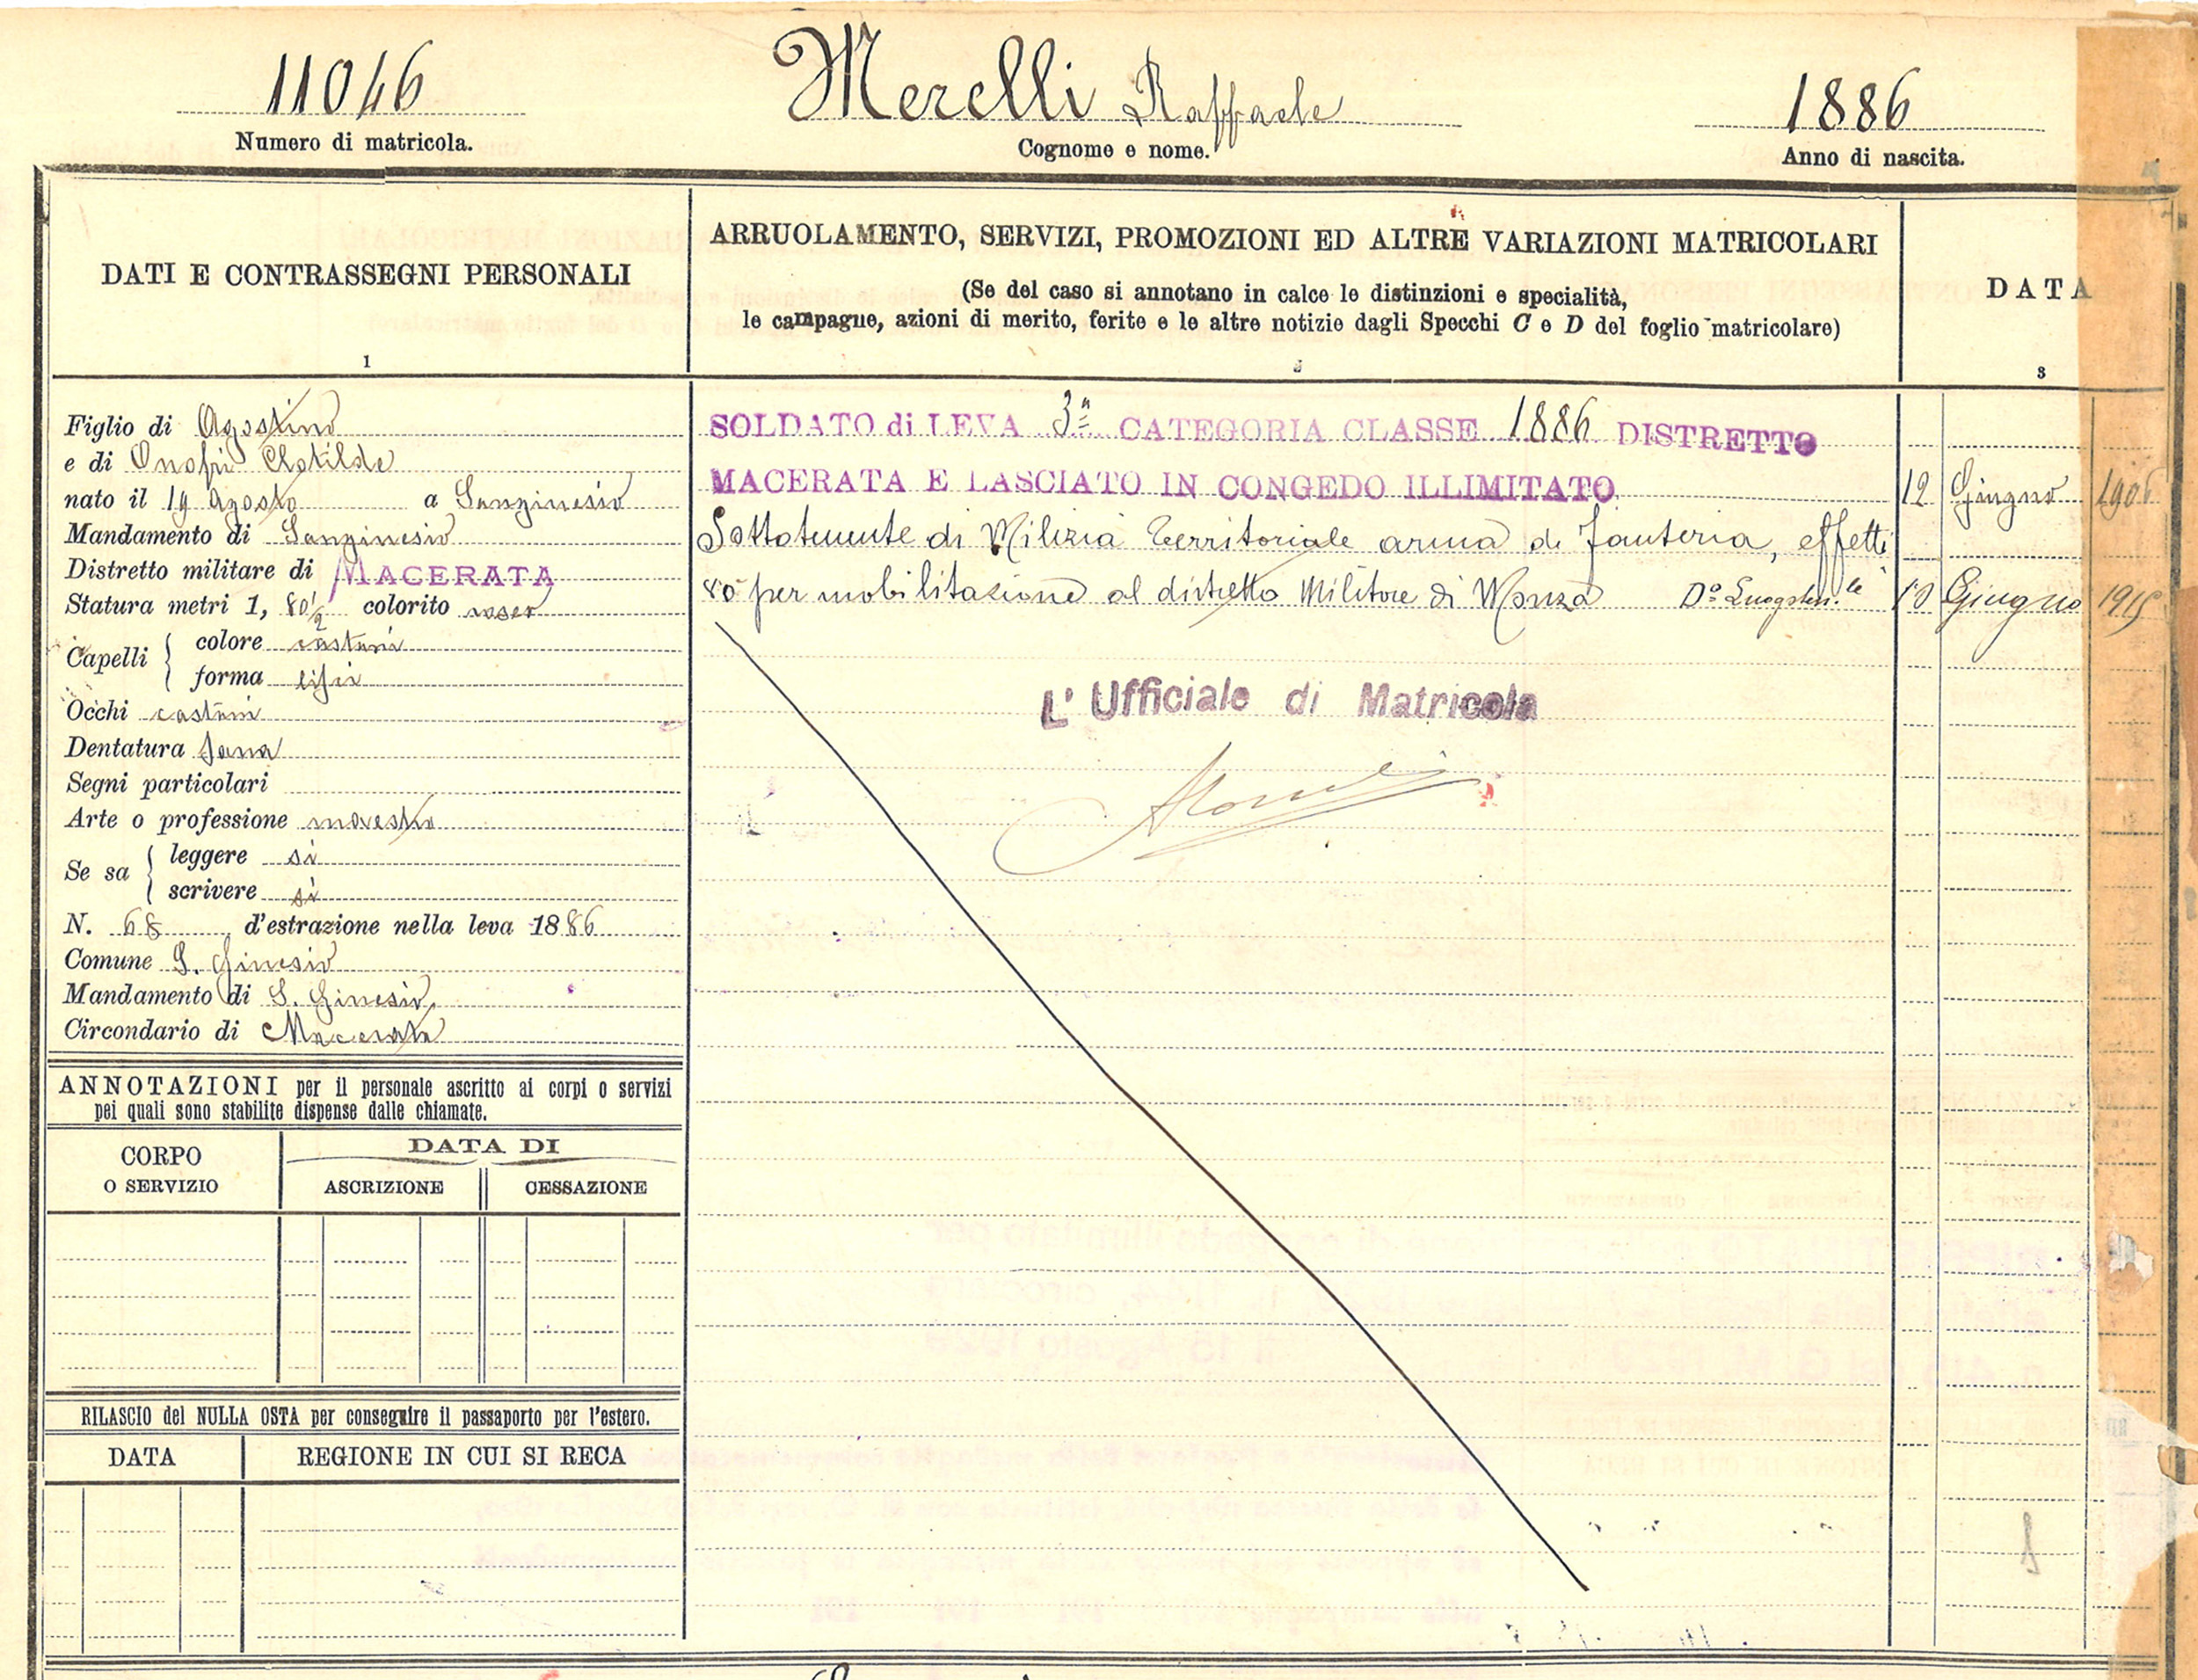 11046
Numero di matricola.
Merelli Raffaele
Cognome e nome.
1886
Anno di nascita.
DATI E CONTRASSEGNI PERSONALI
1
ARRUOLAMENTO, SERVIZI, PROMOZIONI ED ALTRE VARIAZIONI MATRICOLARI
(Se del caso si annotano in calce le distinzioni e specialità,
le campagne, azioni di merito, ferite e le altre notizie dagli Specchi C e D del foglio matricolare)
DATA
3
Figlio di Agostino
e di Onofri Clotilde
nato il 19 Agosto a Sanginesio
Mandamento di Sanginesio
Distretto militare di MACERATA
Statura metri 1, 80½ colorito roseo
Capelli
colore castani
forma lisci
Occhi castani
Dentatura sana
Segni particolari
Arte o professione maestro
Se sa
leggere si
scrivere si
N. 68 d'estrazione nella leva 1886
Comune S. Ginesio
Mandamento di S. Ginesio
Circondario di Macerata
SOLDATO di LEVA 3ª CATEGORIA CLASSE 1886 DISTRETTO
MACERATA E LASCIATO IN CONGEDO ILLIMITATO 12 Giugno 1906
Sottotenente di Milizia Territoriale arma di fanteria, effetti
vo per mobilitazione al distretto Militare di Monza D° Luogoten.le 10 Giugno 1915
L' Ufficiale di Matricola
ANNOTAZIONI per il personale ascritto ai corpi o servizi
pei quali sono stabilite dispense dalle chiamate.
CORPO
O SERVIZIO
DATA DI
ASCRIZIONE
CESSAZIONE
RILASCIO del NULLA OSTA per conseguire il passaporto per l'estero.
DATA
REGIONE IN CUI SI RECA